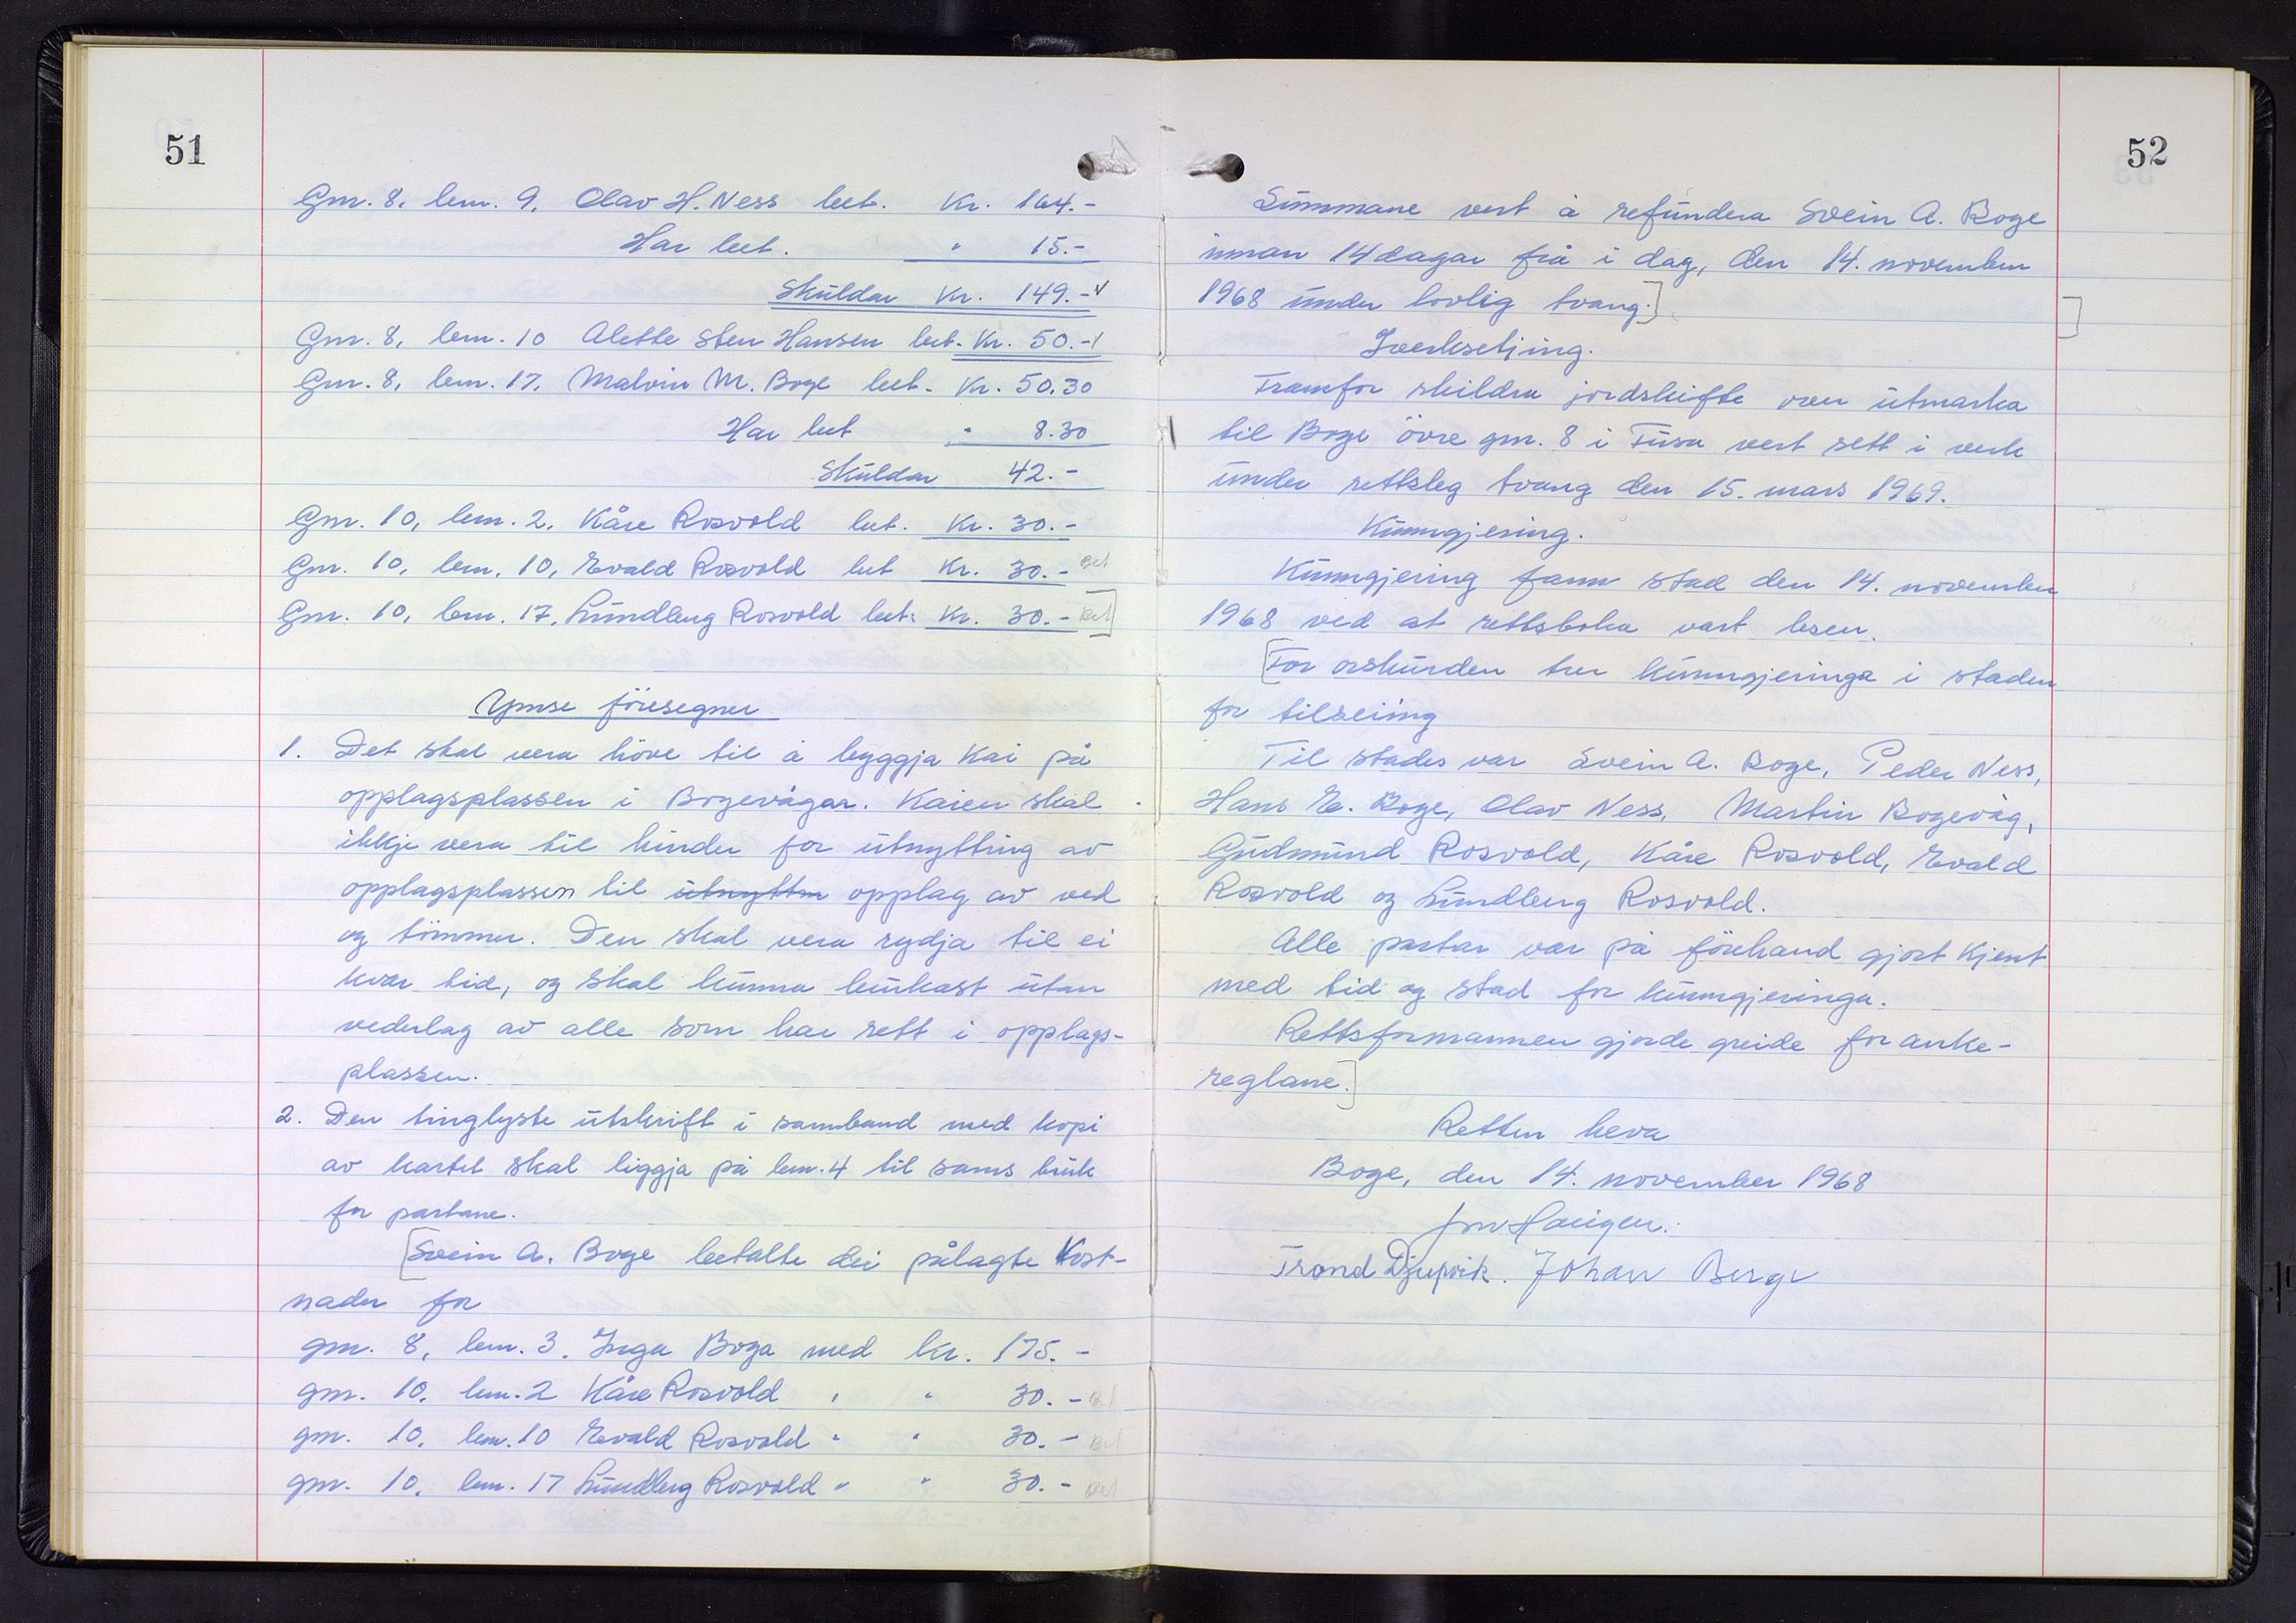 51
Gnr. 8, bnr. 9, Olav H. Ness bet. Kr. 164.-
Har bet. " 15.-
Skuldar Kr. 149.-
Gnr. 8, bnr. 10 Alette Sten Hansen bet. Kr. 50.-
Gnr. 8, bnr. 17, Malvin M. Boge bet. Kr. 50.30
Har bet " 8.30
Skuldar 42.-
Gnr. 10, bnr. 2, Kåre Rosvold bet. Kr. 30.-
Gnr. 10, bnr. 10, Evald Rosvold bet Kr. 30.- Bet
Gnr. 10, bnr. 17, Lundberg Rosvold bet. Kr. 30.- Bet]
Ymse føresegner
1. Det skal vera høve til å byggja kai på
opplagsplassen i Bogevågen. Kaien skal
ikkje vera til hinder for utnytting av
opplagsplassen til utnyttin opplag av ved
og tømmer. Den skal vera rydja til ei
kvar tid, og skal kunna brukast utan
vederlag av alle som har rett i opplags-
plassen.
2. Den tinglyste utskrift i samband med kopi
av kartet skal liggja på bnr. 4 til sams bruk
for partane.
[Svein A. Boge betalte dei pålagte kost-
nader for
gnr. 8, bnr. 3. Inga Boge med kr. 175.-
gnr. 10, bnr. 2 Kåre Rosvold " " 30.- Bet
gnr. 10, bnr. 10 Evald Rosvold " " 30.- Bet
gnr. 10, bnr. 17 Lundberg Rosvold " " 30.- Bet
52
Summane vert å refundera Svein A. Boge
innan 14 dagar frå i dag, den 14. november
1968 under lovlig tvang.]
Iverksetjing.
Framfor skildra jordskifte over utmarka
til Boge øvre gnr. 8 i Fusa vert sett i verk
under rettsleg tvang den 15. mars 1969.
Kunngjering.
Kunngjering fann stad den 14. november
1968 ved at rettsboka vart lesen.
[For orskurden trer kunngjeringa i staden
for tilseiing
Til stades var Svein A. Boge, Peder Ness,
Hans E. Boge, Olav Ness, Martin Bogevåg,
Gudmund Rosvold, Kåre Rosvold, Evald
Rosvold og Lundberg Rosvold.
Alle partar var på førehand gjort kjent
med tid og stad for kunngjeringa.
Rettsformannen gjorde greide for anke-
reglane.]
Retten heva
Boge, den 14. november 1968
Jon Haugen.
Trond Djupvik. Johan Berge